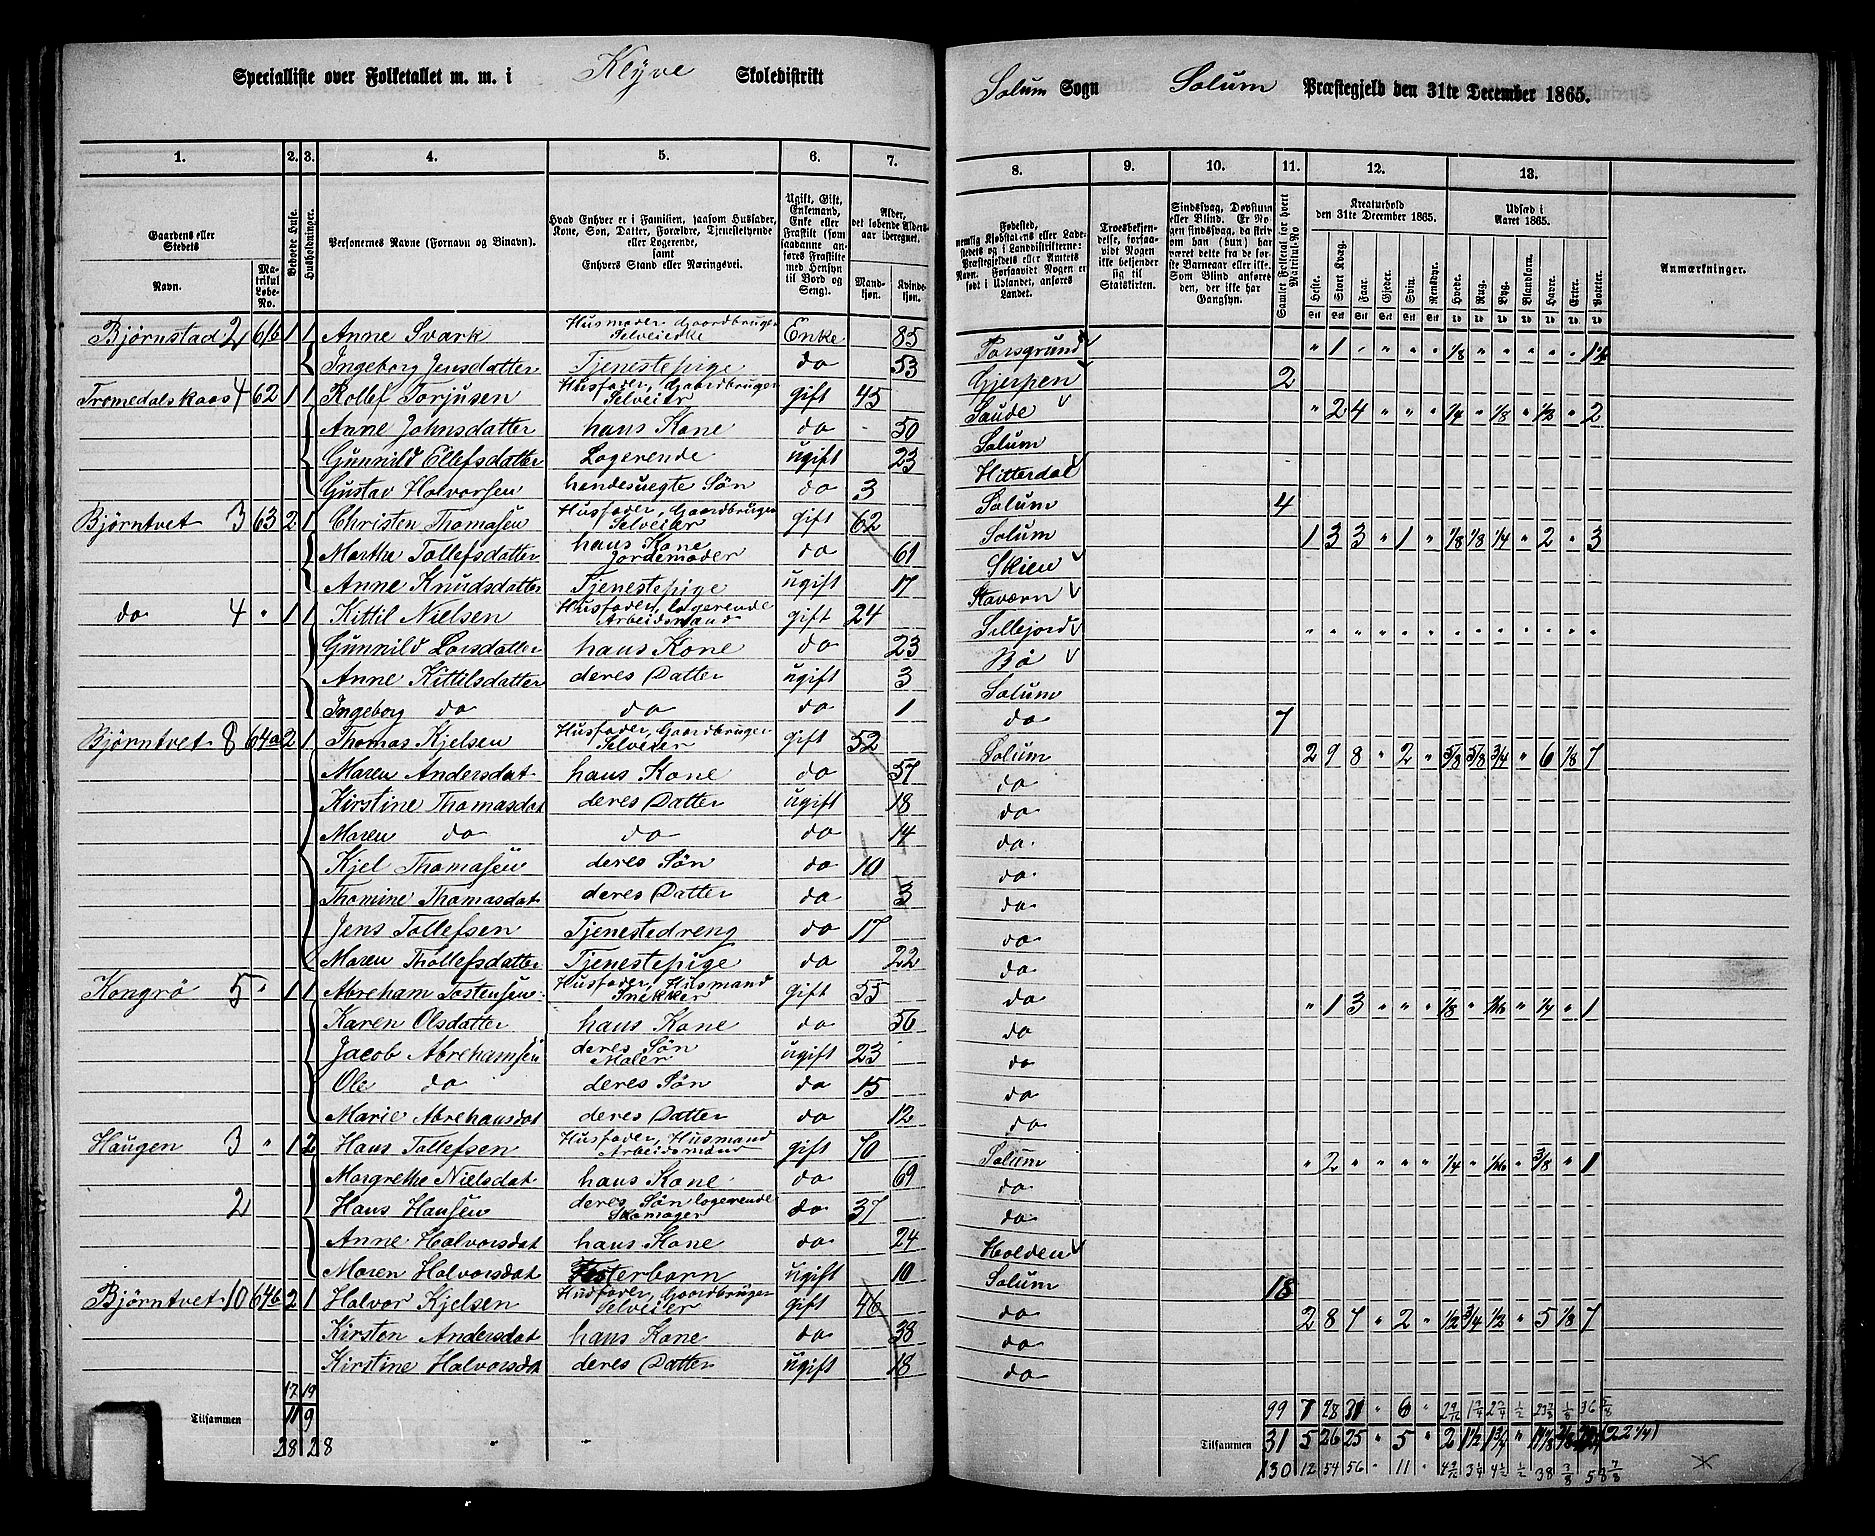 Specialliste over Folketallet m. m. i Klyve Skoledistrikt
Solum Sogn Solum Præstegjeld den 31te December 1865.
1. 2. 3. 4. 5. 6. 7.
8. 9. 10. 11. 12. 13.
Gaardens eller Stedets
Navn.
Matrikul Løbe-No.
Beboede Huse.
Husholdninger.
Personernes Navne (Fornavn og Binavn).
Hvad Enhver er i Familien, saasom Husfader, Kone, Søn, Datter, Forældre, Tjenestetyende eller Logerende,
samt
Enhvers Stand eller Næringsvei.
Ugift, Gift, Enkemand, Enke eller Fraskilt (som saadanne anføres Fraskilte med Hensyn til Bord og Seng).
Alder, det løbende Aldersaar iberegnet.
Mandkjøn. Kvindekjøn.
Fødested,
nemlig Kjøbstadens eller Ladestedets og i Landdistrikterne: Præstegjeldets eller Amtets Navn. Forsaavidt Nogen er født i Udlandet, anføres Landet.
Troesbekjendelse, forsaavidt Nogen ikke bekjender sig til Statskirken.
Sindssvag, Døvstum eller Blind. Er Nogen sindssvag, da skrives om han (hun) har været dette fra de første Barneaar eller ikke. Som Blind anføres den, der ikke har Gangsyn.
Samlet Folketal for hvert Matrikul-No
Kreaturhold den 31te December 1865.
Udsæd i Aaret 1865.
Heste. Stort Kvæg. Faar. Gjeder. Svin. Rensdyr. Hvede. Rug. Byg. Blandkorn. Havre. Erter. Poteter.
Anmærkninger.
Bjørnstad 2 66 1 1 Anne Svark Husmoder Gaardbruger Selveierske Enke 85 Porsgrund " 1 " " " " 1/8 " " " " " 1½
Ingeborg Jensdatter Tjenestepige do 53 Gjerpen 2
Tromedalskaas 4 62 1 1 Rollef Torjusen Husfader, Gaardbruger Selveier gift 45 Saude " 2 4 " " " 1/4 " 1/8 " 1/2 " 2
Anne Johnsdatter hans Kone do 50 Solum
Gunnild Ellefsdatter Logerende ugift 23 Hitterdal
Gustav Halvorsen hendes uegte Søn do 3 Solum 4
Bjørntvet 3 63 2 1 Christen Thomasen Husfader, Gaardbruger Selveier gift 62 Solum 1 3 3 " 1 " 1/8 1/8 1/4 " 2 " 3
Marthe Tollefsdatter hans Kone Jordemoder do 61 Skien
Anne Knudsdatter Tjenestepige ugift 17 Stavern
do 4 " 1 1 Kittil Nielsen Husfader, logerende Arbeidsmand gift 24 Sillejord " " " " " " " " " " " " "
Gunnild Larsdatter hans Kone do 23 Bø
Anne Kittilsdatter deres Datter ugift 3 Solum
Ingeborg do do do 1 do 7
Bjørntvet 8 64a 2 1 Thomas Kjelsen Husfader, Gaardbruger Selveier gift 52 Solum 2 9 8 " 2 " 5/8 5/8 3/4 " 6 1/8 7
Maren Andersdat. hans Kone do 57 do
Kirstine Thomasdat deres Datter ugift 18 do
Maren do do do 14 do
Kjel Thomasen deres Søn do 10 do
Thomine Thomasdat. deres Datter do 3 do
Jens Tollefsen Tjenestedreng do 17 do
Maren Thollefsdatter Tjenestepige do 22 do
Kongrø 5 " 1 1 Abreham Tostensen Husfader, Husmand Snekker gift 55 do " 1 3 " " " 1/8 " 1/16 " 1/4 " 1
Karen Olsdatter hans Kone do 56 do
Jacob Abrehamsen deres Søn Maler ugift 23 do
Ole do deres Søn do 15 do
Marie Abrehamsdat deres Datter do 12 do
Haugen 3 " 1 2 Hans Tollefsen Husfader, Husmand Arbeidsmand gift 70 Solum " 2 " " " " 1/4 " 1/16 " 3/8 " 1
Margrethe Nielsdat hans Kone do 69 do
2 Hans Hansen deres Søn logerende Skomager do 37 do
Anne Halvorsdat hans Kone do 24 Holden
Maren Halvorsdat Fosterbarn ugift 10 Solum 18
Bjørntvet 10 64b 2 1 Halvor Kjelsen Husfader, Gaardbruger Selveier gift 46 do 2 8 7 " 2 " 1/2 3/4 1/2 " 5 1/8 7
Kirsten Andersdat hans Kone do 38 do
Kirstine Halvorsdat deres Datter ugift 18 do
17 19
Tilsammen 11 9
28 28
99 7 28 31 " 6
Tilsammen 31 5 26 25 " 5 " 2 1½ 1¾
130 12 54 56 " 11 " 38 3/8 58 7/8